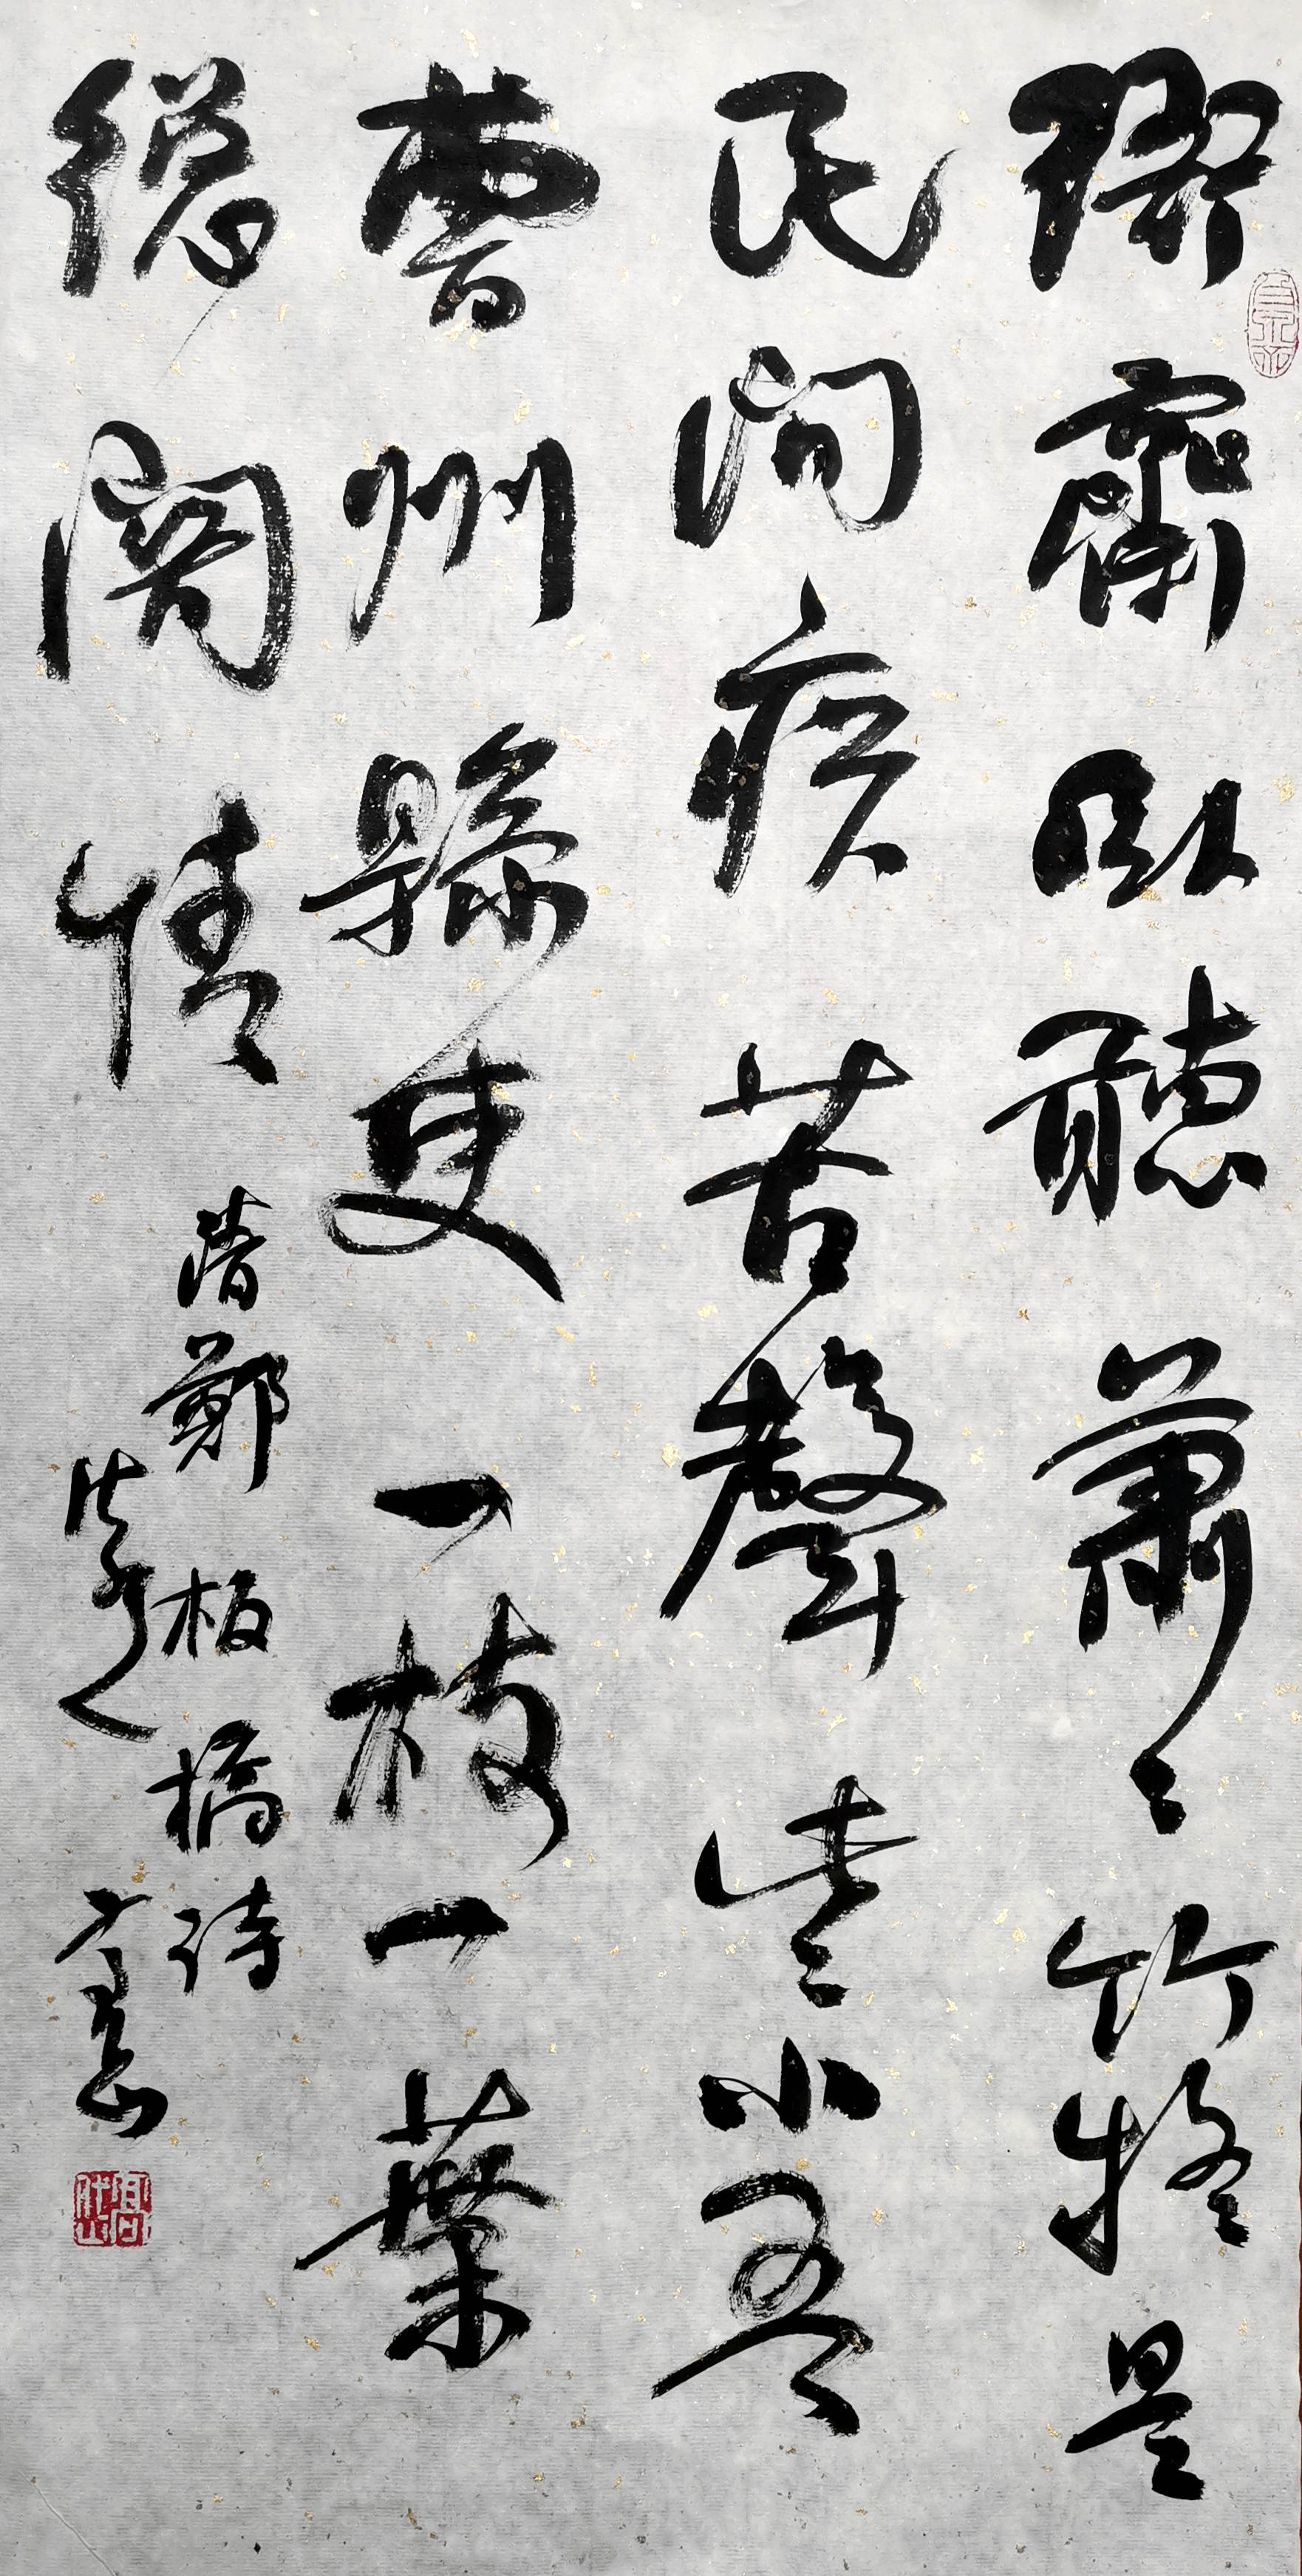 衙齋臥聽蕭〻竹疑是
民間疾苦聲些小吾
曹州縣吏一枝一葉
總關情
清鄭板橋詩